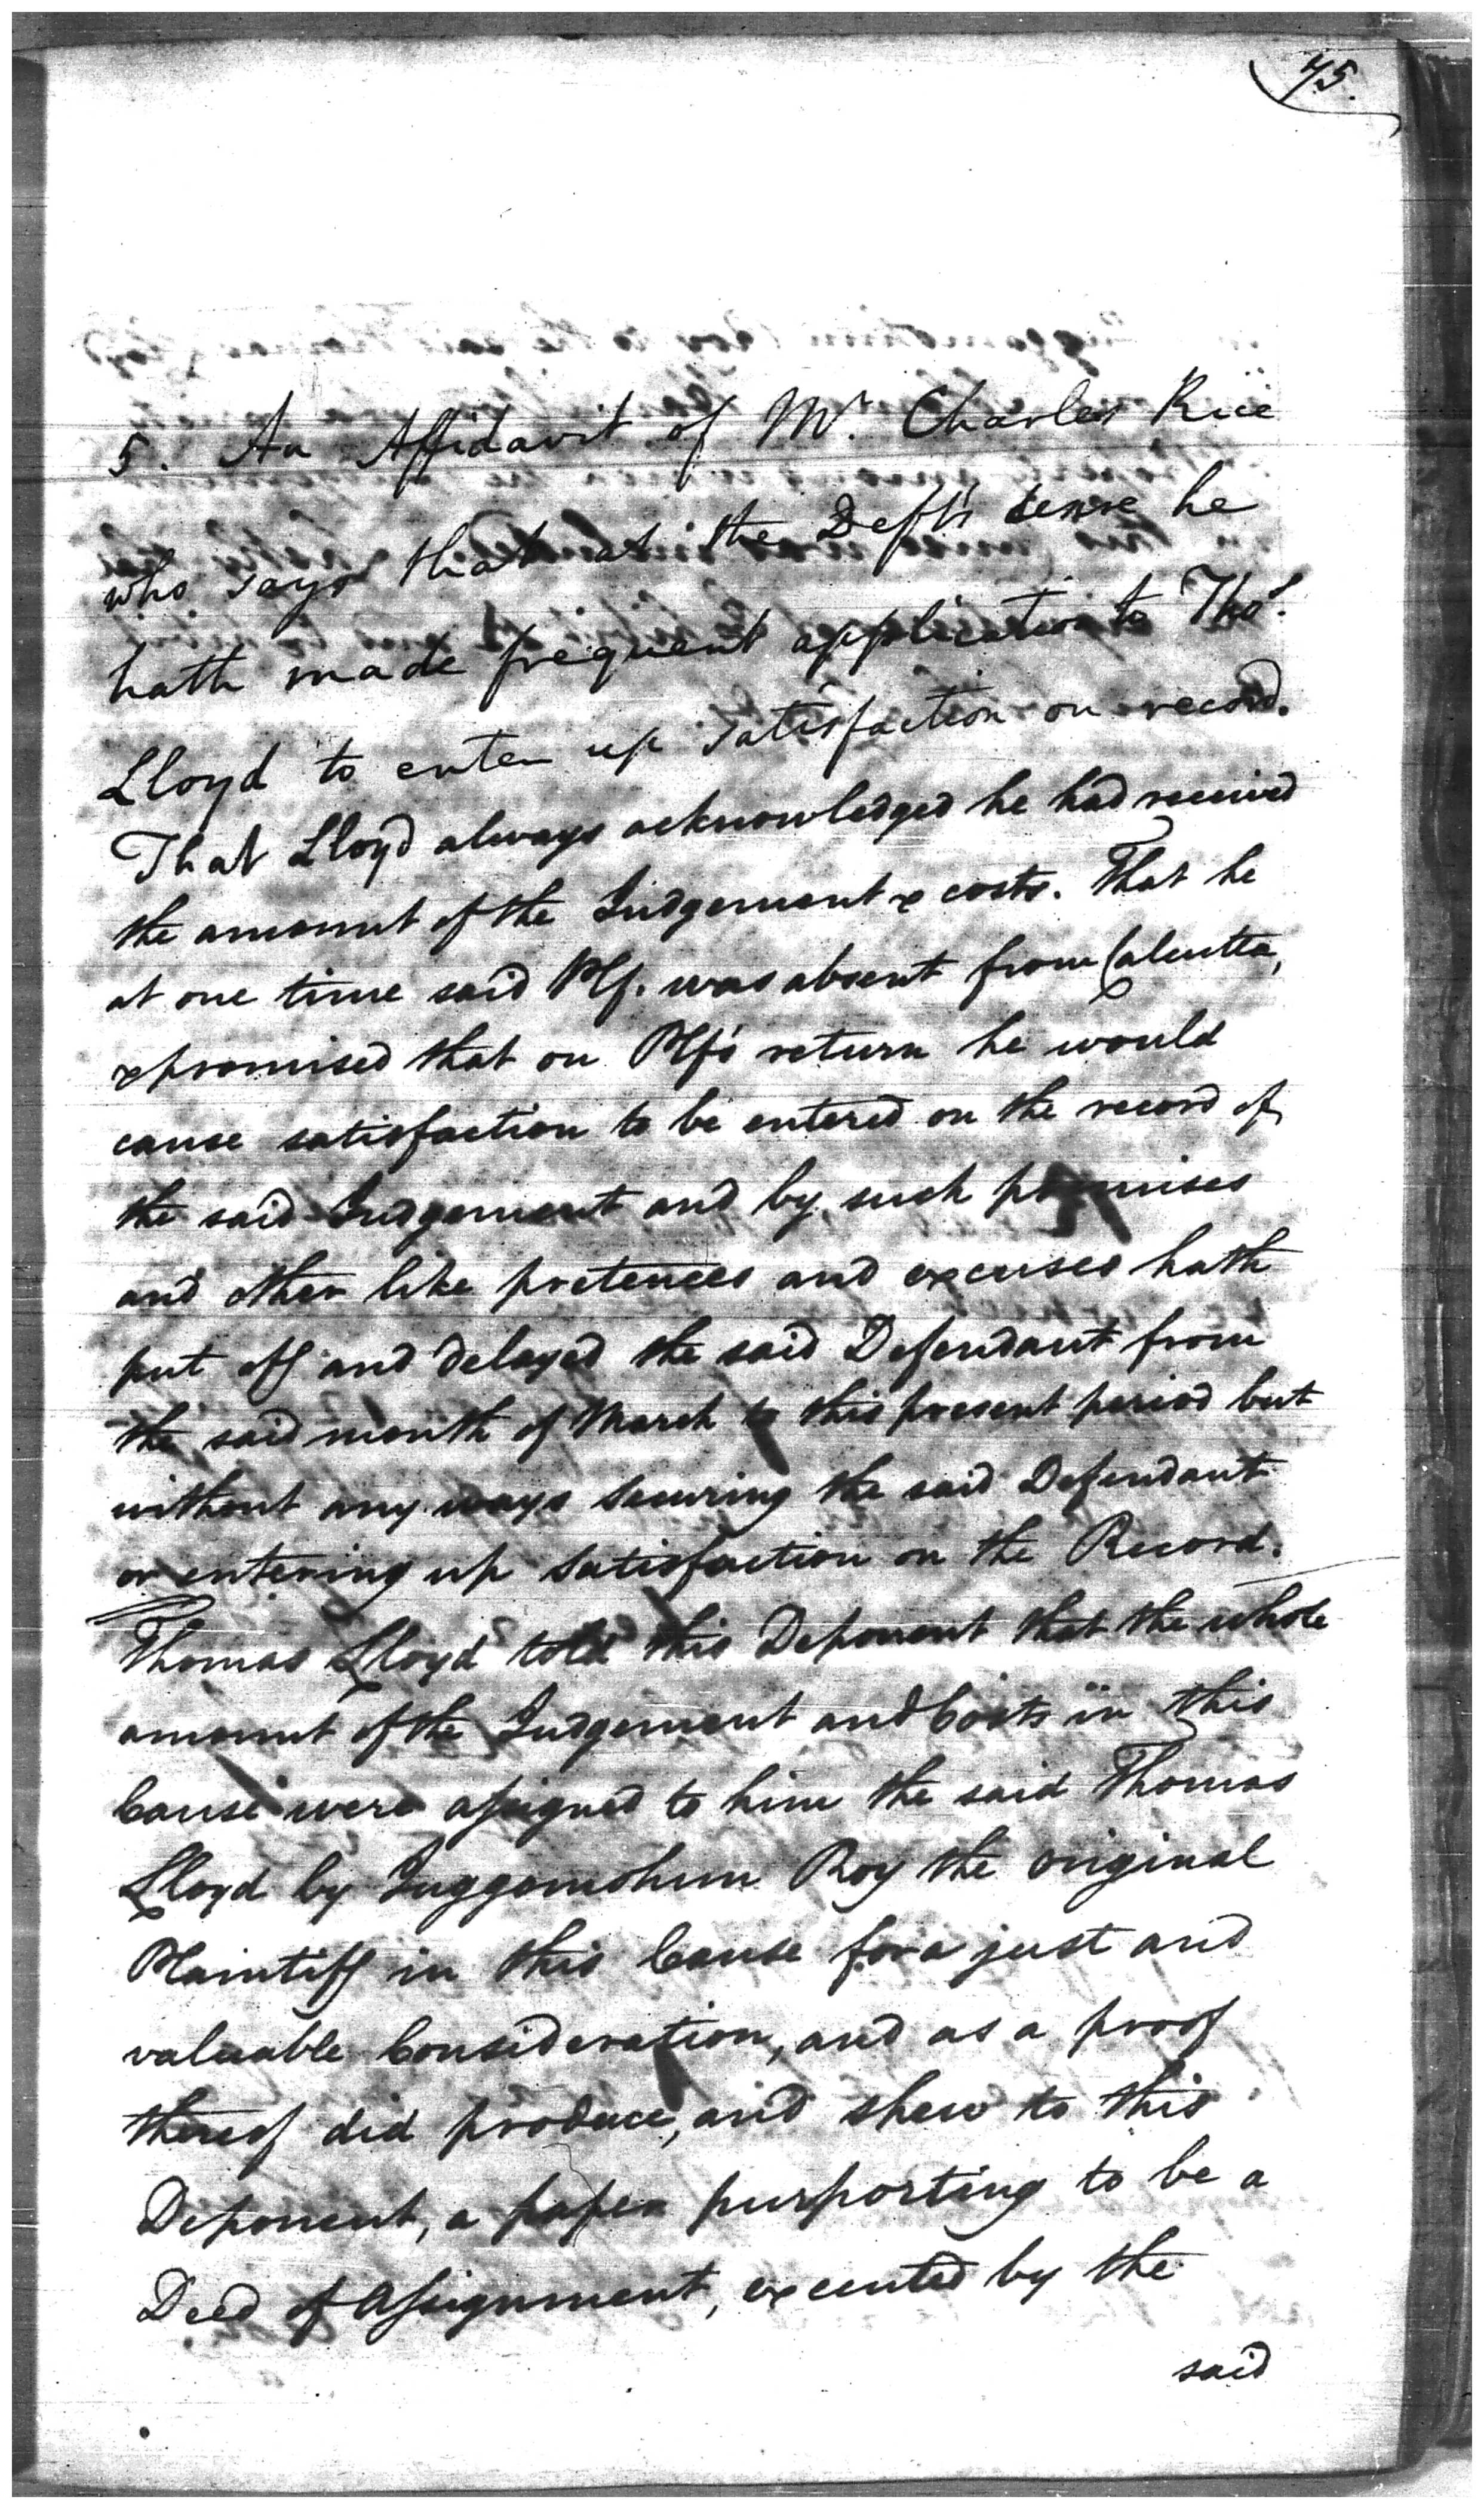 45.
5. An Affidavit of Mr. Charles Rice
who says that at the Deft's he
hath made frequent application to Thos.
Lloyd to enter up satisfaction on record.
That Lloyd always acknowledged he had received
the amount of the Judgement & costs. That he
at one time said Plf. was absent from Calcutta,
& promised that on Plf's return he would
cause satisfaction to be entered on the record of
the said Judgement and by such promises
and other like pretences and excuses hath
put off and delayed the said Defendant from
the said month of March to this present period but
without any ways securing the said Defendant
or entering up satisfaction on the Record.
Thomas Lloyd told this Deponent that the whole
amount of the Judgement and Costs in this
Cause were assigned to him the said Thomas
Lloyd by Juggomohun Roy the original
Plaintiff in this Cause for a just and
valuable Consideration, and as a proof
thereof did produce, and shew to this
Deponent, a paper purporting to be a
Deed of Assignment, executed by the
said